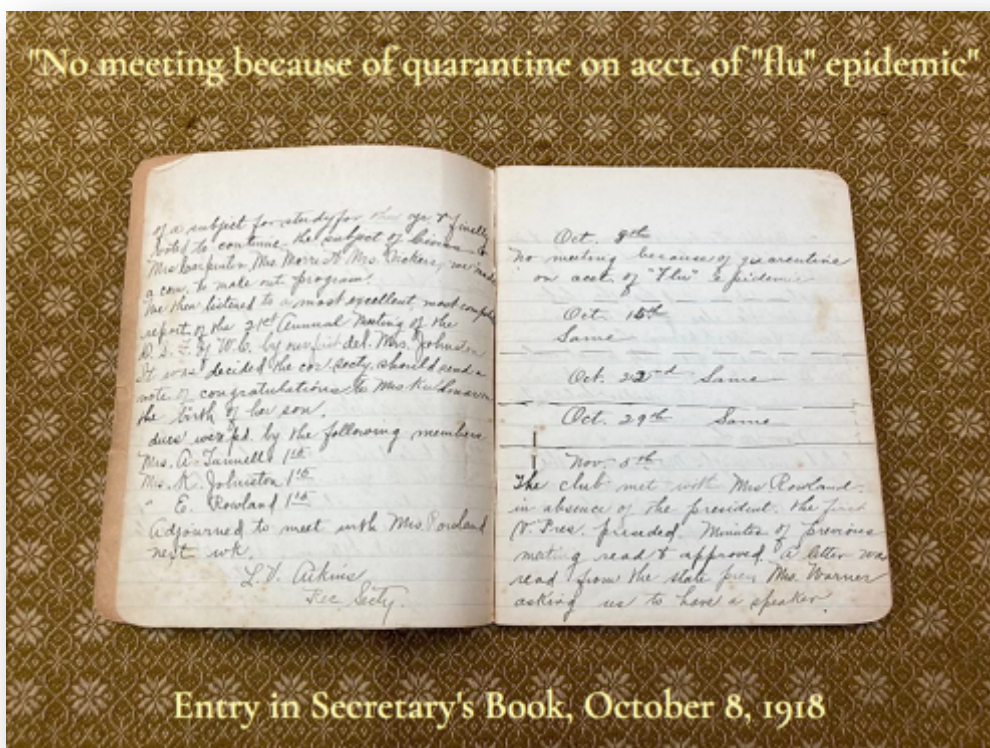 "No meeting because of quarantine on acct. of "flu" epidemic"
of a subject for study for the yr & finally
voted to continue the subject of
Mrs Carpenter, Mrs Morris & Mrs. Dickers, were made
a com. to make out program.
We then listened to a most excellent, most complete
report of the 21st Annual Meeting of the
D. S. F. of W. C. by our del. Mrs. Johnston
It was decided the cor. secty. should send a
note of congratulations to Mrs on
the birth of her son.
dues were pd. by the following members
Mrs. A. Tunnell 1.00
Mrs. K. Johnston 1.00
" E. Rowland 1.00
Adjourned to meet with Mrs. Rowland
next wk.
L. V. Atkins
Rec Secty.
Oct. 8th
No meeting because of quarentine
on acct. of "Flu" epidemic
Oct. 15th
Same
Oct. 22nd Same
Oct. 29th Same
Nov. 5th
The club met with Mrs Rowland.
in absence of the president. the first
V. Pres. presided. Minutes of previous
meeting read & approved. A letter was
read from the state pres. Mrs. Warner
asking us to have a speaker.
Entry in Secretary's Book, October 8, 1918